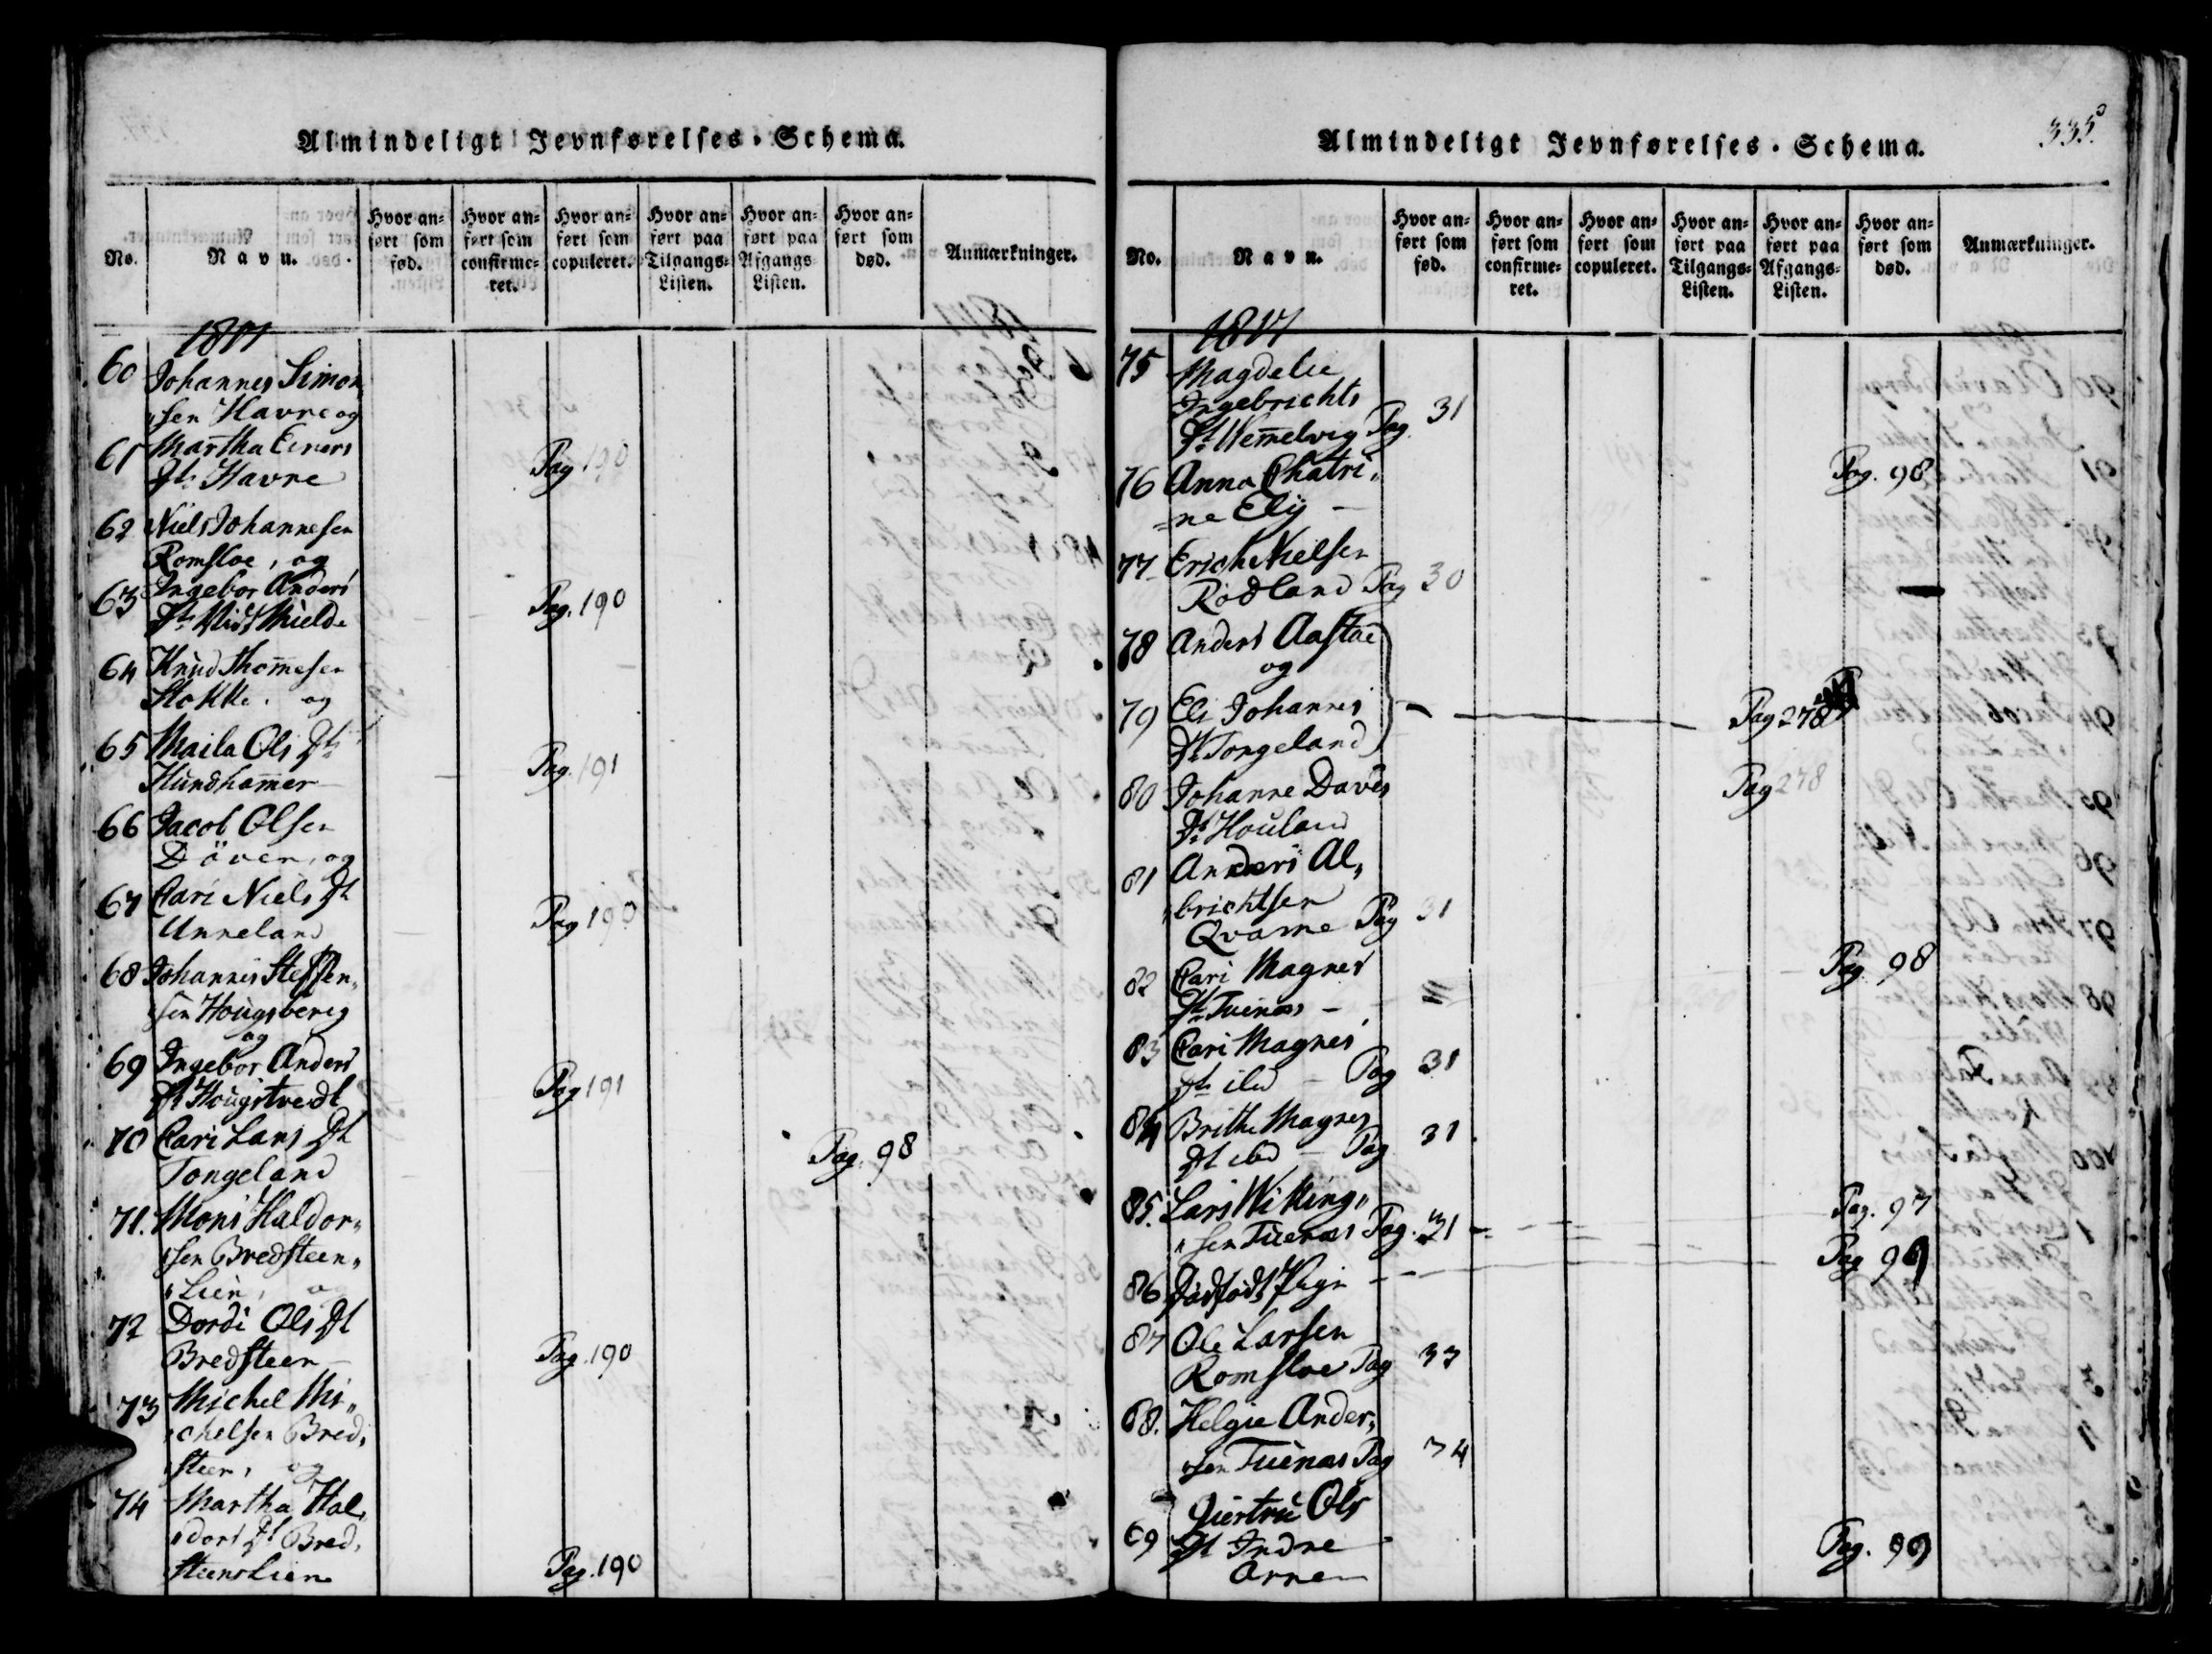 Almindeligt Jevnførelses-Schema.
No.
Navn.
Hvor anført som fød.
Hvor anført som confirmeret.
Hvor anført som copuleret.
Hvor anført paa Tilgangs-Listen.
Hvor anført paa Afgangs-Listen.
Hvor anført som død.
Anmærkninger.
1817
60 Johannes Simon
"sen Havre og
61 Martha Einers
Dt: Havre Pag 190
62 Niels Johannesen
Romsloe, og
63 Ingebor Anders
Dt: Midt Mielde Pag. 190
64 Knud Thomesen
Stokke, og
65 Maila Ols Dt:
Hundhamer Pag. 191
66 Jacob Olsen
Døven, og
67 Cari Niels Dt
Unneland Pag 190
68 Johannes Steffen,
"sen Hougsberig
og
69 Ingebor Anders
Dt Hougstvedt Pag 191
70 Cari Lars Dt
Tongeland Pag. 98
71. Mons Haldor"
"sen Bredsteen"
"Lien, og
72 Dordi Ols Dt
Bredsteen Pag. 190
73 Michel Mi"
"chelsen Bred,
"steen, og
74 Martha Hal,
"dors Dt Bred,
steensLien Pag. 190
Almindeligt Jevnførelses-Schema.
335
No.
Navn.
Hvor anført som fød.
Hvor anført som confirmeret.
Hvor anført som copuleret.
Hvor anført paa Tilgangs-Listen.
Hvor anført paa Afgangs-Listen.
Hvor anført som død.
Anmærkninger.
1817
75 Magdelie
Ingebrichts
Dt: Wemelvig Pag. 31
76 Anna Chatri" Pag. 98
"ne Elij —
77 Erich Nielsen
Rødland Pag 30
78 Anders Aastad
og
79 Eli Johannes Pag 278
Dt: Tongeland
80 Johanne Davids Pag 278
Dt: Houland
81 Anders Al"
"brichtsen
Qvame Pag 31
82 Cari Magnes Pag. 98
Dt: Tuenæs —
83 Cari Magnes
Dt: ibd — Pag 31
84 Brithe Magnes
Dt ibd — Pag 31
85. Lars Wiking" Pag. 97
"sen Tuenæs Pag. 31
86 Dødfødt Pige Pag 99
87 Ole Larsen
Romsloe Pag 33
68. Helgie Ander"
"sen Tuenæs Pag 34
69 Giertrü Ols
Dt Indre Pag. 99
Arne